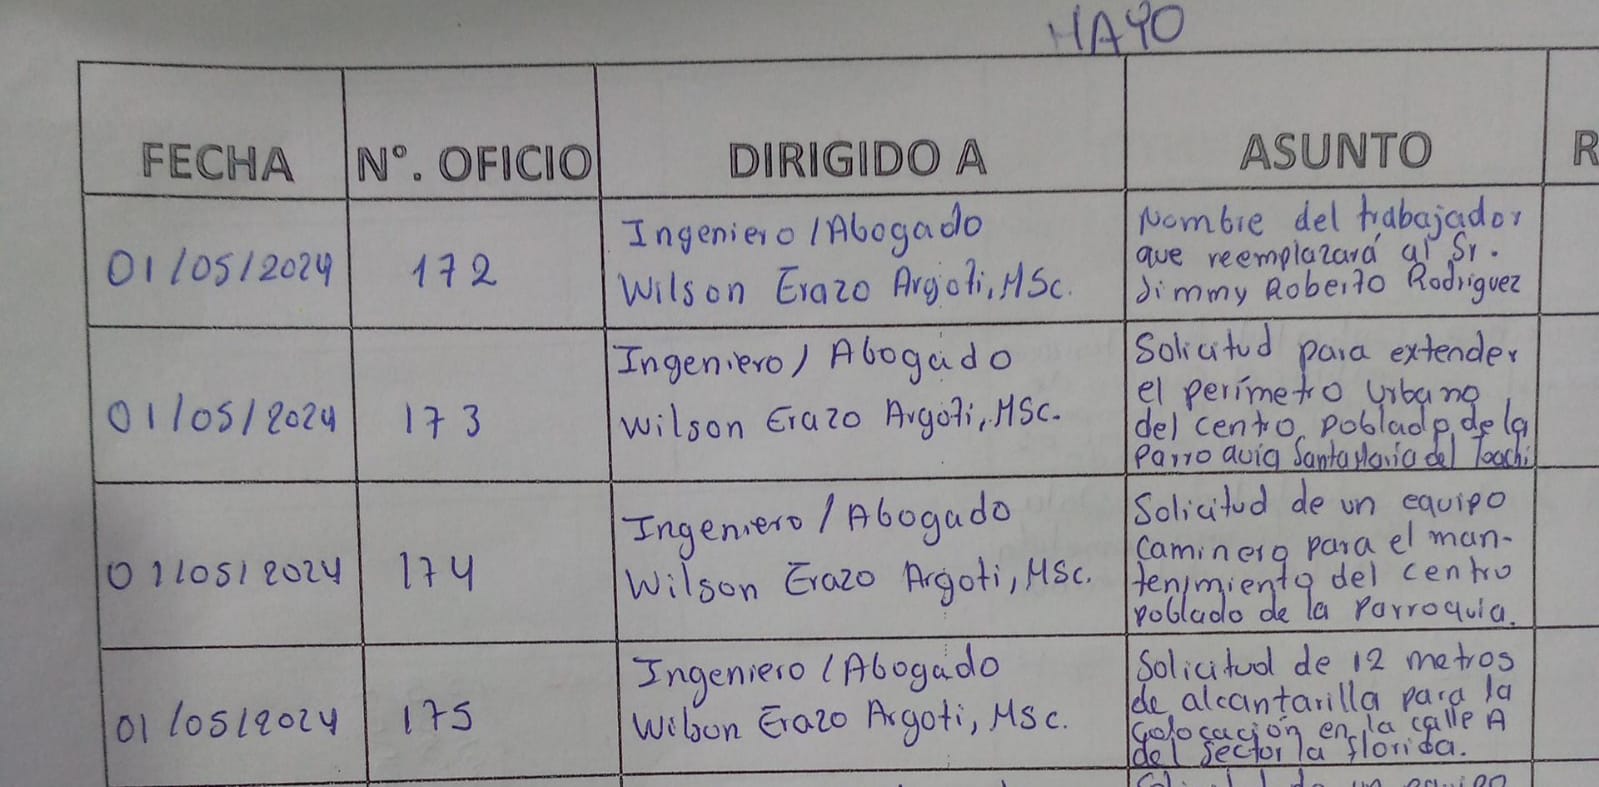 MAYO
FECHA
N°. OFICIO
DIRIGIDO A
ASUNTO
R
01/05/2024
172
Ingeniero/Abogado
Wilson Erazo Argoti, MSc.
Nombre del trabajador
que reemplazará al Sr.
Jimmy Roberto Rodriguez
01/05/2024
173
Ingeniero/Abogado
Wilson Erazo Argoti, MSc.
Solicitud para extender
el perímetro Urbano
del centro poblado de la
Parroquia Santa María del Toachi
01/05/2024
174
Ingeniero/Abogado
Wilson Erazo Argoti, MSc.
Solicitud de un equipo
caminero para el man-
tenimiento del centro
poblado de la Parroquia.
01/05/2024
175
Ingeniero/Abogado
Wilson Erazo Argoti, MSc.
Solicitud de 12 metros
de alcantarilla para la
colocación en la calle A
del sector la florida.